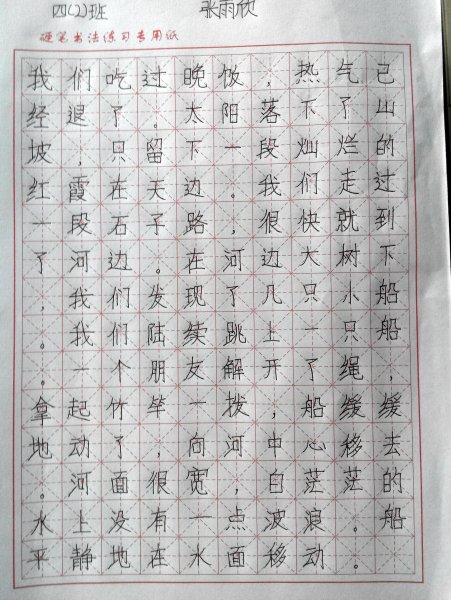 四(2)班 张雨欣
硬笔书法练习专用纸
我们吃过晚饭，热气已
经退了。太阳落下了山
坡，只留下一段灿烂的
红霞在天边。我们走过
一段石子路，很快就到
了河边。在河边大树下
，我们发现了几只小船
。我们陆续跳上一只船
。一个朋友解开了绳，
拿起竹竿一拨，船缓缓
地动了，向河中心移去
。河面很宽，白茫茫的
水上没有一点波浪。船
平静地在水面移动。